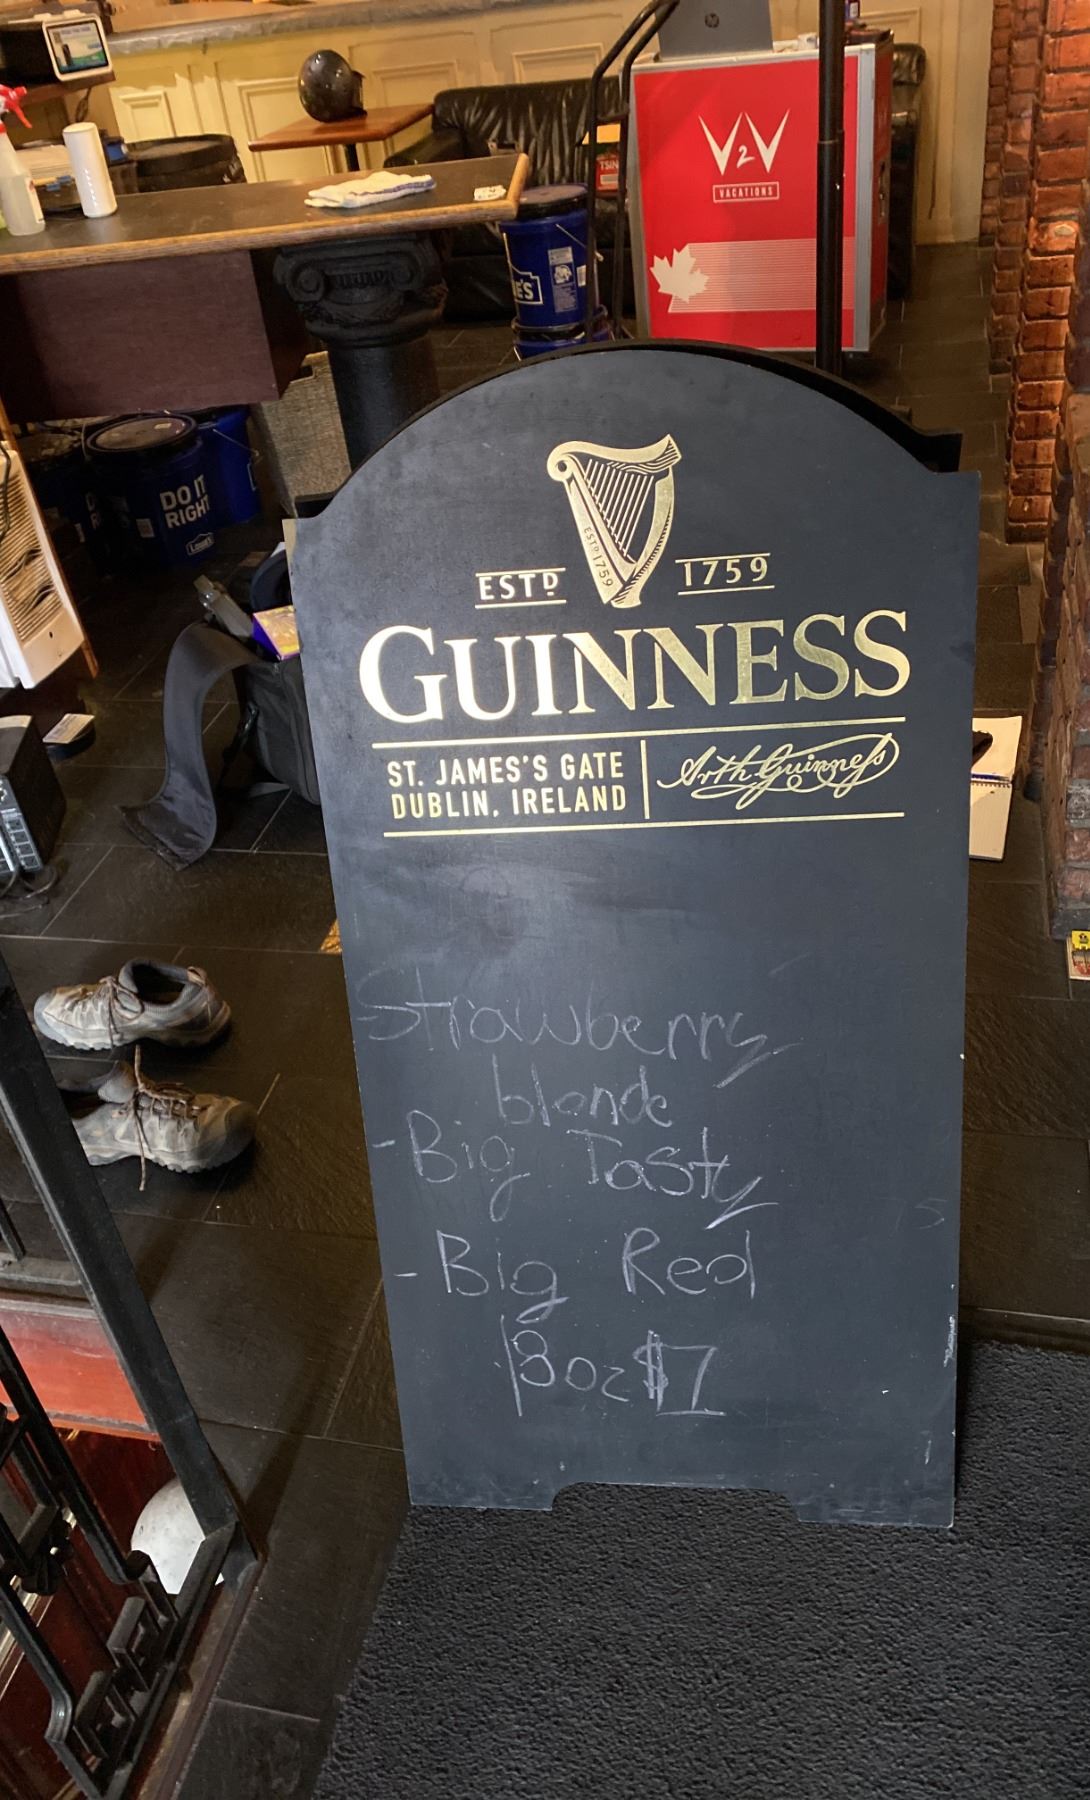 V2V
VACATIONS
TSIN
E'S
DO IT
RIGHT
LOWE'S
ESTD 1759
ESTD 1759
GUINNESS
ST. JAMES'S GATE
DUBLIN, IRELAND
Arth Guinness
Strawberry
blonde
- Big Tasty
- Big Red
13oz $7